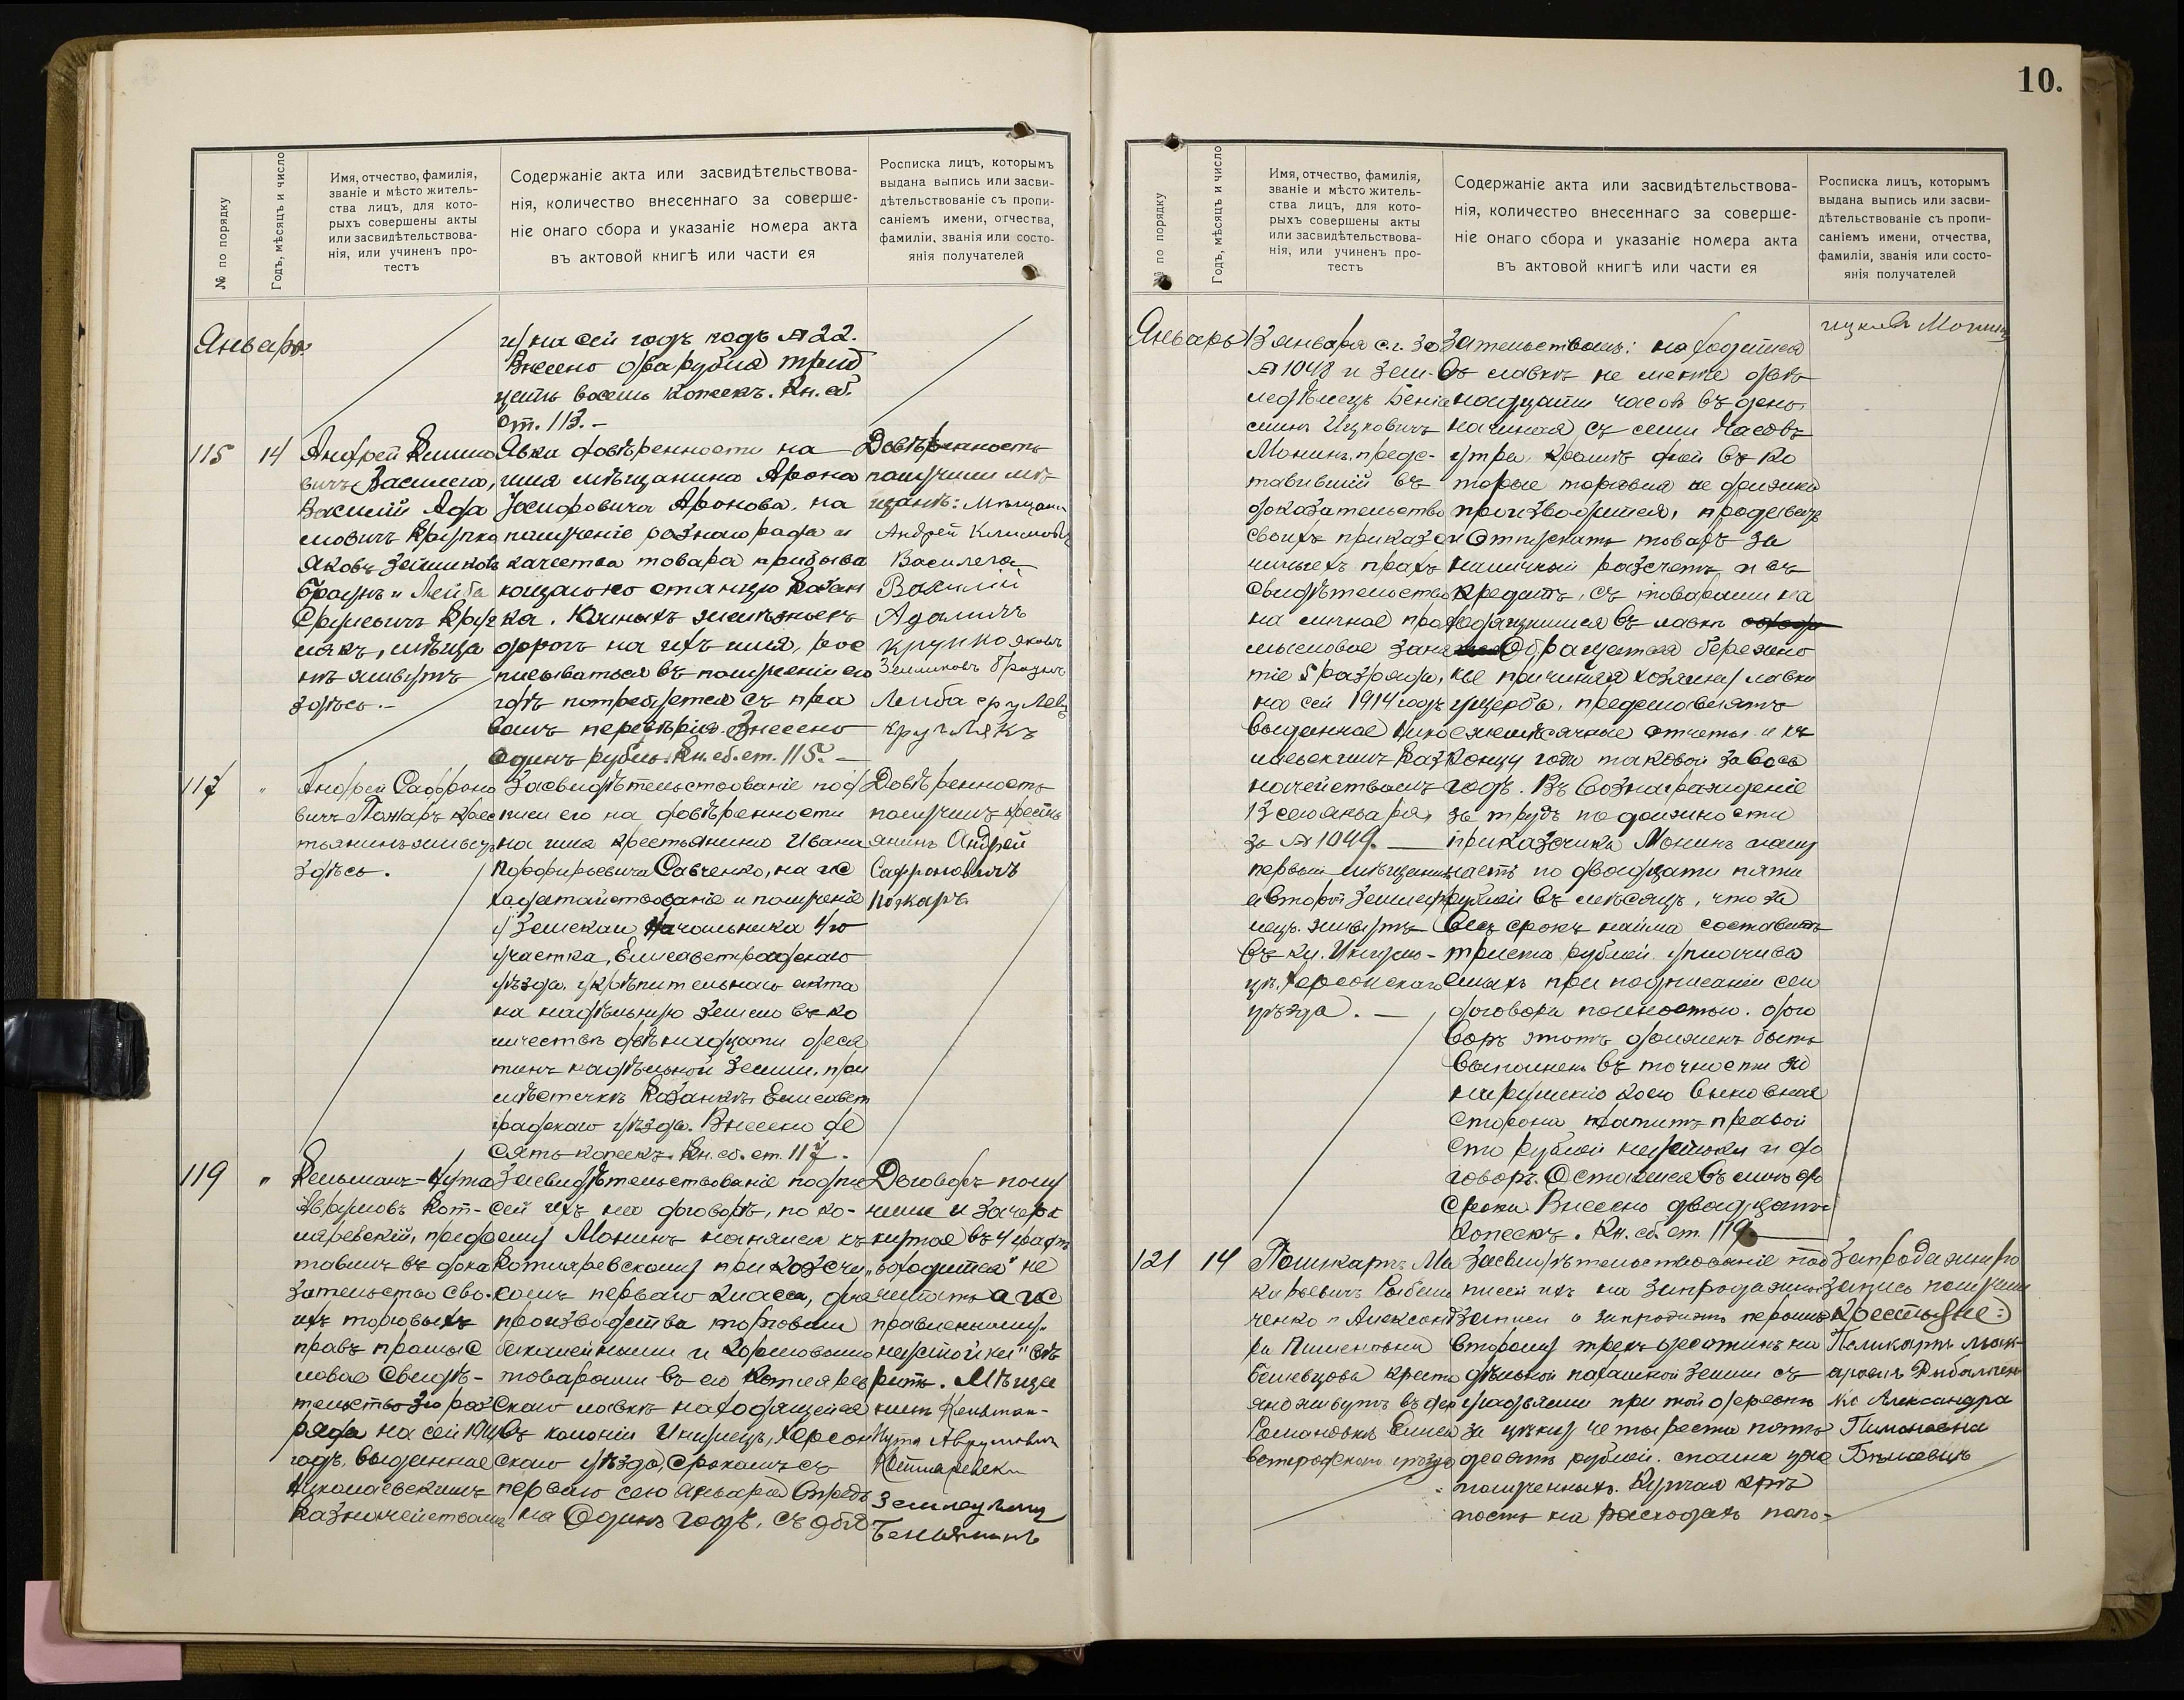 10.
№ по порядку
Годъ, мѣсяцъ и число
Имя, отчество, фамилія,
званіе и мѣсто житель-
ства лицъ, для кото-
рыхъ совершены акты
или засвидѣтельствова-
нія, или учиненъ про-
тестъ
Содержаніе акта или засвидѣтельствова-
нія, количество внесеннаго за соверше-
ніе онаго сбора и указаніе номера акта
въ актовой книгѣ или части ея
Росписка лицъ, которымъ
выдана выпись или засви-
дѣтельствованіе съ пропи-
саніемъ имени, отчества,
фамиліи, званія или состо-
янія получателей
Январь
на сей годъ подъ № 22.
Внесено два рубля трид
цать восемь копеекъ. Кн. сб.
ст. 113. -
115
14
Андрей Климо
вичъ Василега,
Василій Ада
мовичъ Крупко
Яковъ Зеликовъ
Браунъ и Лейба
Срулевичъ Круг
лякъ, мѣща
не живутъ
здѣсь. -
Явка довѣренности на
имя мѣщанина Арона
Іосифовича Аронова, на
полученіе разнаго рода и
качества товара прибыва
ющаго на станцію Казан
ка, Южныхъ желѣзныхъ
дорогъ на ихъ имя, рос
писываться въ полученіи его
гдѣ потребуется съ пра
вомъ передовѣрія. Внесено
одинъ рубль. Кн. сб. ст. 115. -
Довѣренность
получили мѣ
щане: Мѣщани
Андрей Климовичъ
Василега
Василій
Адамичъ
Крупко Яковъ
Зеликовъ Браунъ
Лейба Срулевъ
Круглякъ
117
"
Андрей Сафроно
вичъ Пожаръ крес
тьянинъ живетъ
здѣсь.
Засвидѣтельствованіе под
писи его на довѣренности
на имя крестьянина Ивана
Порфирьевича Савченко, на ис
ходатайствованіе и полученіе
у Земскаго Начальника 4го
участка, Елисаветградскаго
уѣзда, укрѣпительнаго акта
на надѣльную землю въ ко
личествѣ двѣнадцати деся
тинъ надѣльной земли, при
мѣстечкѣ Казанкѣ Елисавет
градскаго уѣзда. Внесено де
сять копеекъ. Кн. сб. ст. 117.
Довѣренность
получилъ кресть
янинъ Андрей
Сафроновичъ
Пожаръ
119
"
Кельманъ-Нута
Аврумовъ Кот-
ляревскій, предс
тавилъ въ дока
зательство сво-
ихъ торговыхъ
правъ промыс
ловое свидѣ-
тельство 3го раз
ряда на сей 1914
годъ, выданное
Николаевскимъ
Казначействомъ
Засвидѣтельствованіе подпи
сей ихъ на договорѣ, по ко-
ему Монинъ нанялся къ
Котляревскому приказчи
комъ перваго класса, для
производства торговли
бакалейными и хлѣбными
товарами въ его Котлярев
скаго лавкѣ находящейся
въ колоніи Ингулецъ, Херсон
скаго уѣзда, срокомъ съ
перваго сего января впредь
на Одинъ годъ, съ обя
Договоръ полу
чили и зачерк
нутое въ 4 графѣ
"находится" не
читать а ис
правленному
"неустойки" вѣ
рить. Мѣща
нинъ Кельман-
Нута Аврумовичъ
Котляревски
Земледѣлецъ
Беньяминъ
№ по порядку
Годъ, мѣсяцъ и число
Имя, отчество, фамилія,
званіе и мѣсто житель-
ства лицъ, для кото-
рыхъ совершены акты
или засвидѣтельствова-
нія, или учиненъ про-
тестъ
Содержаніе акта или засвидѣтельствова-
нія, количество внесеннаго за соверше-
ніе онаго сбора и указаніе номера акта
въ актовой книгѣ или части ея
Росписка лицъ, которымъ
выдана выпись или засви-
дѣтельствованіе съ пропи-
саніемъ имени, отчества,
фамиліи, званія или состо-
янія получателей
Январь
13 января с.г. за
№ 1048 и Зем-
ледѣлецъ Бенія
минъ Ицковичъ
Монинъ, предс-
тавившій въ
доказательство
своихъ приказ
чичьихъ правъ
свидѣтельство
на личное про
мысловое заня
тіе 5 разряда,
на сей 1914 годъ
выданное Нико
лаевскимъ Каз
начействомъ
13 сего января
за № 1049. —
первый мѣщанинъ
а второй земледѣ
лецъ, живутъ
въ ку. Ингуль-
цѣ, Херсонскаго
уѣзда. —
зательствомъ: находиться
въ лавкѣ не менѣе двѣ
надцати часовъ въ день
начиная съ семи часовъ
утра, кромѣ дней въ ко
торые торговля не должна
производиться, продавать
и отпускать товаръ за
наличный разсчетъ и въ
кредитъ, съ товарами на
ходящимися въ лавкѣ
обращаться бережно
не причиняя хозяину лавки
ущерба, представлять
ежемѣсячные отчеты и къ
концу года таковой за весь
годъ. Въ вознагражденіе
за трудъ по должности
приказчика Монинъ полу
чаетъ по двадцати пяти
рублей въ мѣсяцъ, что за
весь срокъ найма составитъ
триста рублей уплачива
емыхъ при подписаніи сего
договора полностью. Дого
воръ этотъ долженъ быть
выполненъ въ точности за
нарушеніе коего виновная
сторона платитъ правой
сто рублей неустойки и до
говоръ остается въ силѣ до
срока. Внесено двадцать
копеекъ. Кн. сб. ст. 119.
ицковъ Монинъ
121
14
Поликарпъ Ма
карьевичъ Рыбал
ченко и Александ
ра Пименовна
Бѣлевцова крестья
яне живутъ въ дер
Романовкѣ Елиса
ветградскаго уѣзда
Засвидѣтельствованіе под
писей ихъ на запродажной
записи о запродажѣ первымъ
второму трехъ десятинъ на
дѣльной пахатной земли съ
угодьями при той деревнѣ
за цѣну четыреста пять
десятъ рублей, сполна уже
полученныхъ. Купчая крѣ
пость на расходахъ попо-
Запродажную
запись получили
Крестьяне:
Поликарпъ Мак-
аровичъ Рыбалчен
ко Александра
Пимоновна
Бѣлевцъ